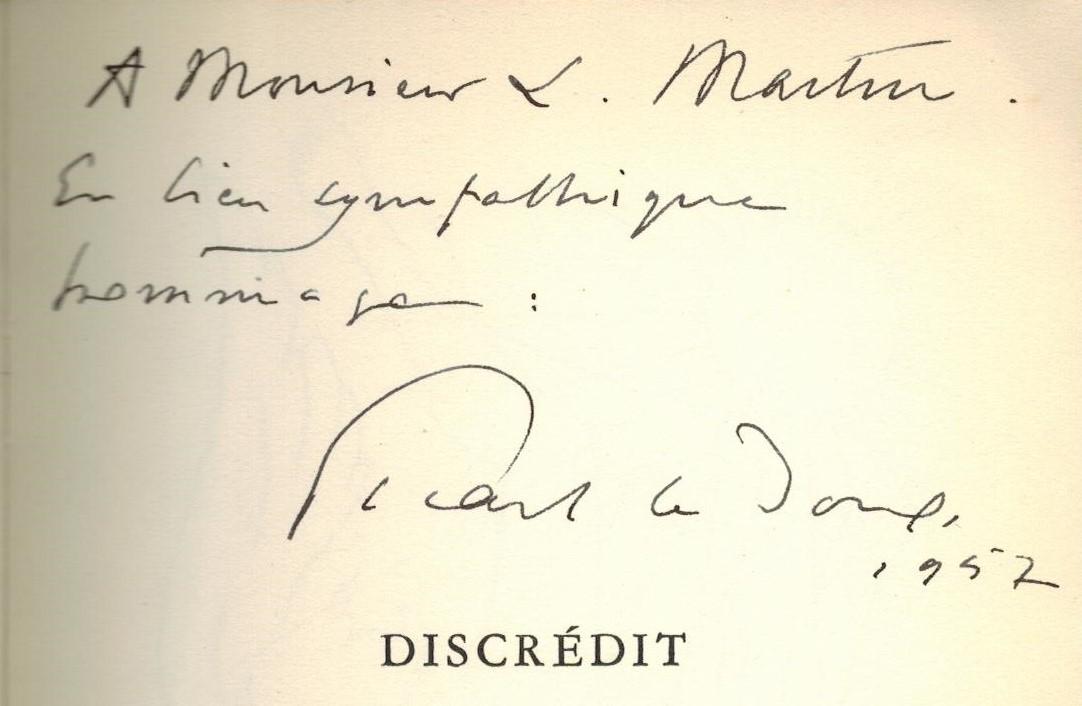 A Monsieur L. Martin.
En bien sympathique
hommage :
Picart le Doux,
1957
DISCRÉDIT